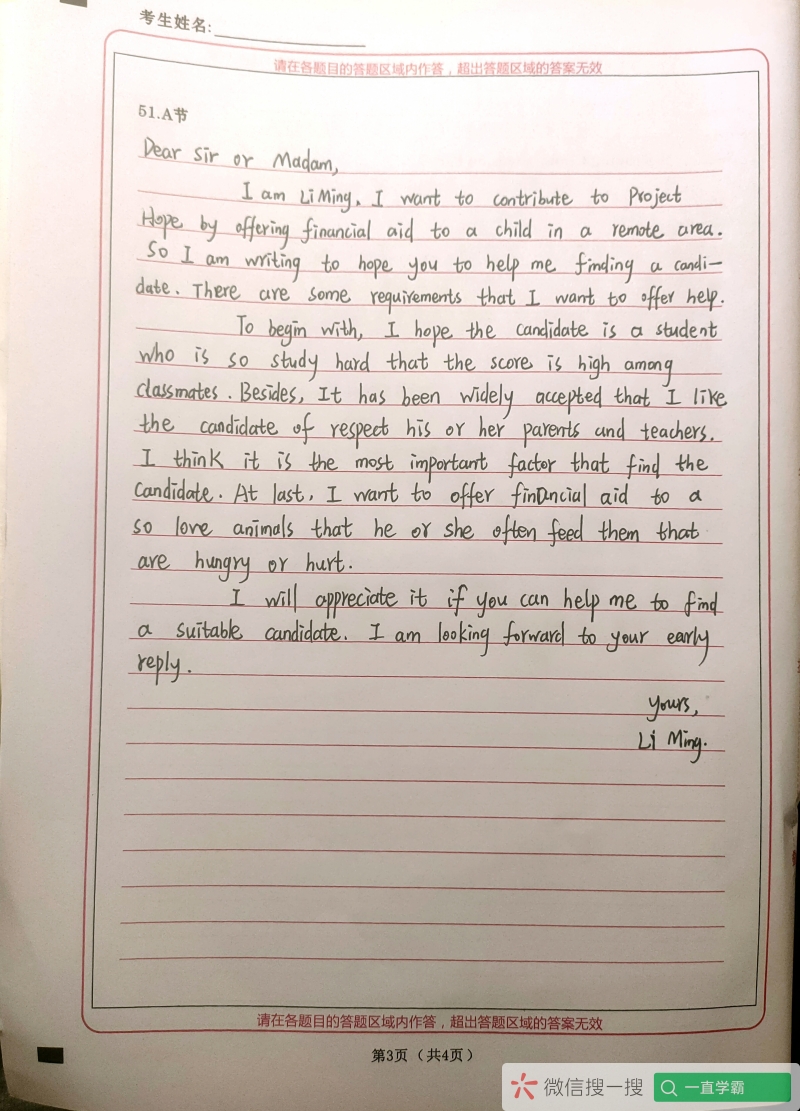 考生姓名:
请在各题目的答题区域内作答，超出答题区域的答案无效
51.A节
Dear Sir or Madam,
I am Li Ming. I want to contribute to Project
Hope by offering financial aid to a child in a remote area.
So I am writing to hope you to help me finding a candi-
date. There are some requirements that I want to offer help.
To begin with, I hope the candidate is a student
who is so study hard that the score is high among
classmates. Besides, It has been widely accepted that I like
the candidate of respect his or her parents and teachers.
I think it is the most important factor that find the
candidate. At last, I want to offer financial aid to a
so love animals that he or she often feed them that
are hungry or hurt.
I will appreciate it if you can help me to find
a suitable candidate. I am looking forward to your early
reply.
yours,
Li Ming.
请在各题目的答题区域内作答，超出答题区域的答案无效
第3页（共4页）
微信搜一搜
一直学霸